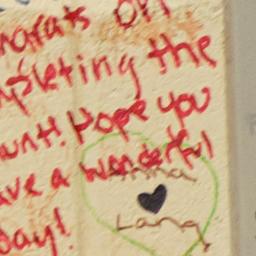 ongrats on
mpleting the
unt! Hope you
ave a wonderful
day!
Anna
Lana